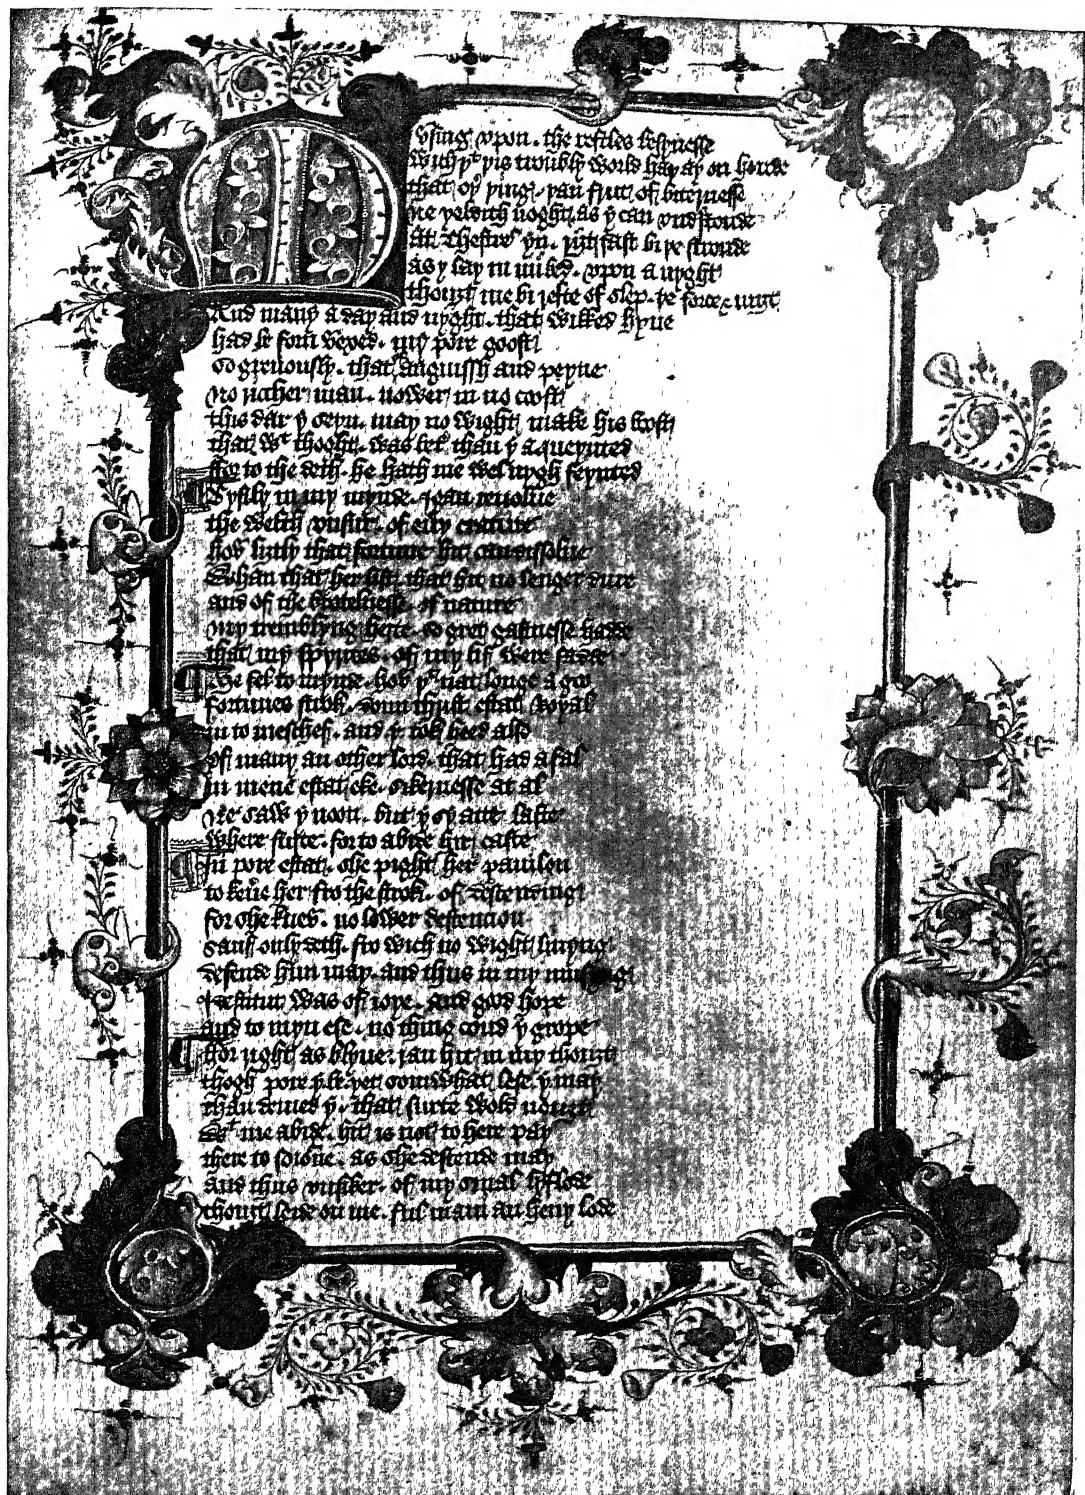 Musing vpon . the restles besynesse
With yt yis troubly world hay ay on honde
that oyr ying . yan fruit of bitternesse
ne yeldith noght as y can vndstonde
At Chestres yn . right fast bi ye stronde
as y lay in my bed . vpon a nyght
thouzt me bi refte of slep . ye force & might
And many a day and nyght . that wikked hyne
had be forn vexed . my pore goost
so greuously . that anguissh and peyne
no richer man . nower in no coost
this dar y seyn . may no wight make his boost
that wt thoght . was bet than y a queynted
ffor to the deth . he hath me wel nygh feynted
Bysily in my mynde . y can reuolue
the welth vnsur . of eúy creature
how liztly that fortune hit can dissolue
Whan that her list that hit no lenger dure
and of the brotelnesse . of nature
my tremblyng herte . so gret gastnesse hadde
that my spyrites . of my lif were sadde
Me fel to mynde . how yt nat longe a goo
fortunes strok . doun thrist estat Royal
in to meschef . and y tok heed also
of many an other lord . that had a fal
In mene estat eke . sikernesse at al
Ne saw y noon . but y sy atte laste
where surte . for to abide hir caste
In pore estat . she pight her pauilon
to keúe her fro the strok . of descending
for she knew . no lower descencion
sauf only deth . fro wich no wight lyuyng
defende hym may . and thus in my musyng
y destitut was of ioye . and good hope
and to myn ese . no thing coud y grope
ffor right as blyue . ran hit in my thouzt
thogh pore y be . yet somwhat lese y may
than demed y . that surte wold nouzt
Wt me abide . hit is not to here pay
there to soiorne . as she descende may
and thus vnsiker . of my smal lyflode
thouzt leide on me . ful many an heuy lode